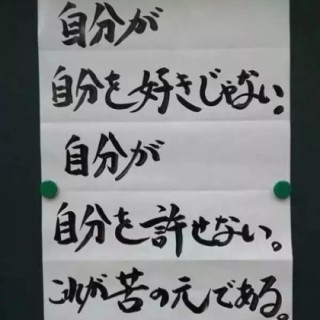 自分が
自分を好きじゃない。
自分が
自分を許せない。
これが苦の元である。